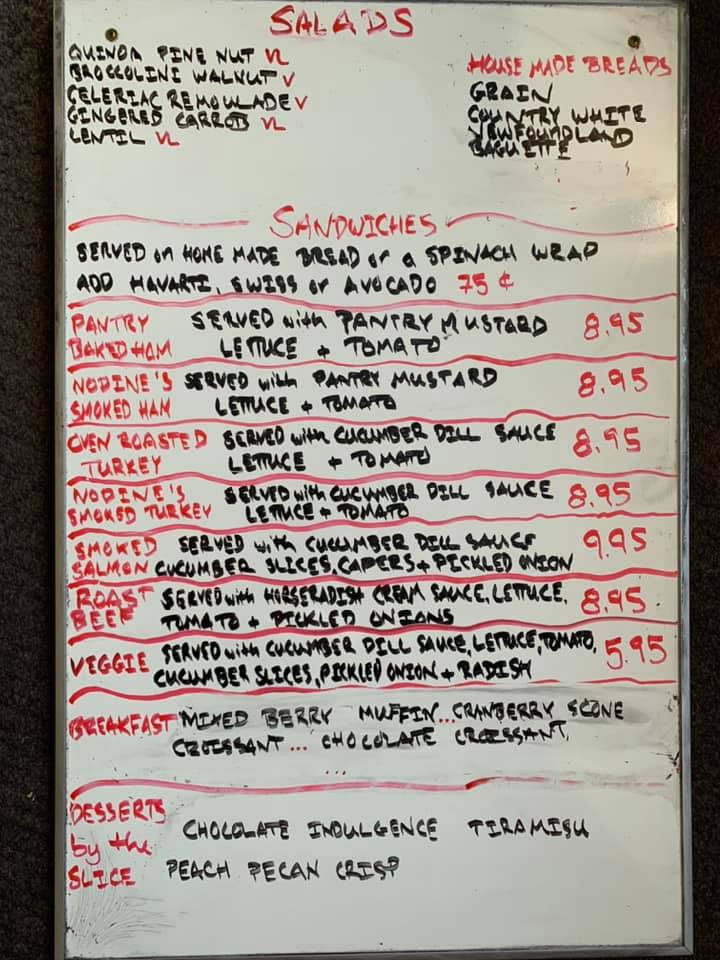 SALADS
QUINOA PINE NUT VL
BROCCOLINI WALNUT V
CELERIAC REMOULADE V
GINGERED CARROTS VL
LENTIL VL
HOUSE MADE BREADS
GRAIN
COUNTRY WHITE
NEWFOUNDLAND
BAGUETTE
SANDWICHES
SERVED on HOME MADE BREAD or a SPINACH WRAP
ADD HAVARTI, SWISS or AVOCADO 75 ¢
PANTRY SERVED with PANTRY MUSTARD 8.95
BAKED HAM LETTUCE + TOMATO
NODINE'S SERVED with PANTRY MUSTARD 8.95
SMOKED HAM LETTUCE + TOMATO
OVEN ROASTED SERVED with CUCUMBER DILL SAUCE 8.95
TURKEY LETTUCE + TOMATO
NODINE'S SERVED with CUCUMBER DILL SAUCE 8.95
SMOKED TURKEY LETTUCE + TOMATO
SMOKED SERVED with CUCUMBER DILL SAUCE 9.95
SALMON CUCUMBER SLICES, CAPERS + PICKLED ONION
ROAST SERVED with HORSERADISH CREAM SAUCE, LETTUCE, 8.95
BEEF TOMATO + PICKLED ONIONS
VEGGIE SERVED with CUCUMBER DILL SAUCE, LETTUCE, TOMATO, 5.95
CUCUMBER SLICES, PICKLED ONION + RADISH
BREAKFAST MIXED BERRY MUFFIN... CRANBERRY SCONE
CROISSANT ... CHOCOLATE CROISSANT,
...
DESSERTS
by the CHOCOLATE INDULGENCE TIRAMISU
SLICE PEACH PECAN CRISP